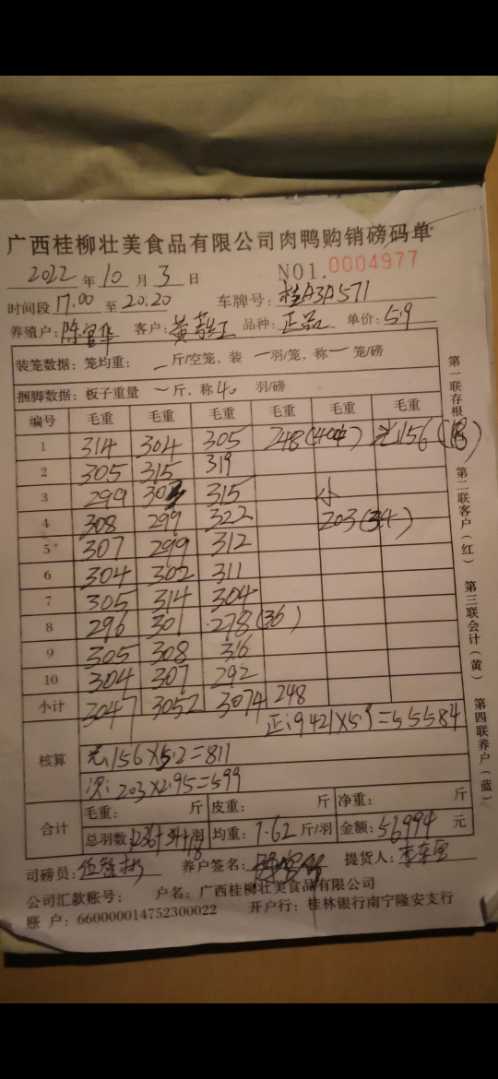 广西桂柳壮美食品有限公司肉鸭购销磅码单
2022 年 10 月 3 日 NO1. 0004977
时间段 17.00 至 20.20 车牌号: 桂A3A571
养殖户: 客户: 黄 品种: 正品 单价: 5.9
装笼数据: 笼均重: 一 斤/空笼、装 一 羽/笼、称 一 笼/磅
捆脚数据: 板子重量 一 斤, 称 40 羽/磅
编号 毛重 毛重 毛重 毛重 毛重 毛重
1 314 304 305 248
2 305 315 319
3 299 303 315 小
4 308 299 322 203(34)
5 307 299 312
6 304 302 311
7 305 314 304
8 296 301 278(36)
9 305 308 316
10 304 307 292
小计 3047 3052 3074 248
正:9421×5.9=55584
核算 156×5.2=811
次:203×2.95=599
合计 毛重: 斤 皮重: 斤 净重: 斤
总羽数: 羽 均重: 7.62 斤/羽 金额: 56994 元
司磅员: 养户签名: 提货人:
公司汇款账号: 户名: 广西桂柳壮美食品有限公司
账 户: 660000014752300022 开户行: 桂林银行南宁隆安支行
第一联存根
第二联客户(红)
第三联会计(黄)
第四联养户(蓝)